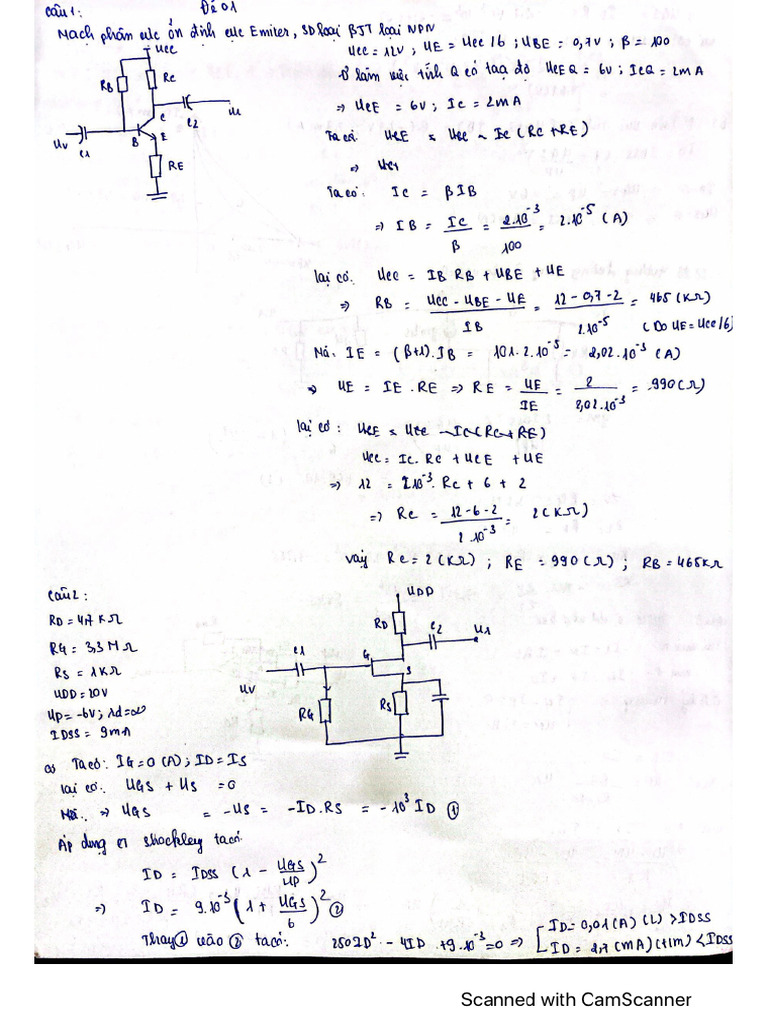 Câu 1: Đề 01
Mạch phân cực ổn định cực Emiter, SD loại BJT loại NPN
Ucc = 12V ; UE = Ucc/6 ; UBE = 0,7V ; β = 100
Ucc
RB
Rc
C
C2
U1
Uv
C1
B
E
RE
Đ làm việc tĩnh Q có tọa độ UCEQ = 6V ; ICQ = 2mA
=> UCE = 6V ; Ic = 2mA
Ta có: UCE = Ucc - Ic (Rc + RE)
Ta có: Ic = βIB
=> IB = Ic/β = 2.10^-3/100 = 2.10^-5 (A)
lại có: Ucc = IB RB + UBE + UE
=> RB = (Ucc - UBE - UE)/IB = (12 - 0,7 - 2)/2.10^-5 = 465 (KΩ)
(Do UE = Ucc/6)
Mà: IE = (β+1).IB = 101.2.10^-5 = 2,02.10^-3 (A)
=> UE = IE.RE => RE = UE/IE = 2/2,02.10^-3 = 990 (Ω)
lại có: UCE = Ucc - Ic (Rc + RE)
Ucc = Ic.Rc + UCE + UE
=> 12 = 2.10^-3.Rc + 6 + 2
=> Rc = (12-6-2)/2.10^-3 = 2 (KΩ)
vậy Rc = 2 (KΩ) ; RE = 990 (Ω) ; RB = 465KΩ
Câu 2:
RD = 4,7 KΩ
RG = 3,3 MΩ
RS = 1KΩ
UDD = 10V
Up = -6V ; rd = ∞
IDSS = 9mA
UDD
RD
C2
U1
C1
G
S
Uv
RG
RS
a) Ta có: IG = 0 (A) ; ID = IS
lại có: UGS + US = 0
=> UGS = -US = -ID.RS = -10^3 ID ①
Áp dụng ct Shockley ta có:
ID = IDSS (1 - UGS/UP)^2
=> ID = 9.10^-3 (1 + UGS/6)^2 ②
Thay ① vào ② ta có: 250ID^2 - 4ID + 9.10^-3 = 0 => [ ID = 0,01 (A) (L) > IDSS
ID = 2,7 (mA) (t/m) < IDSS
Scanned with CamScanner